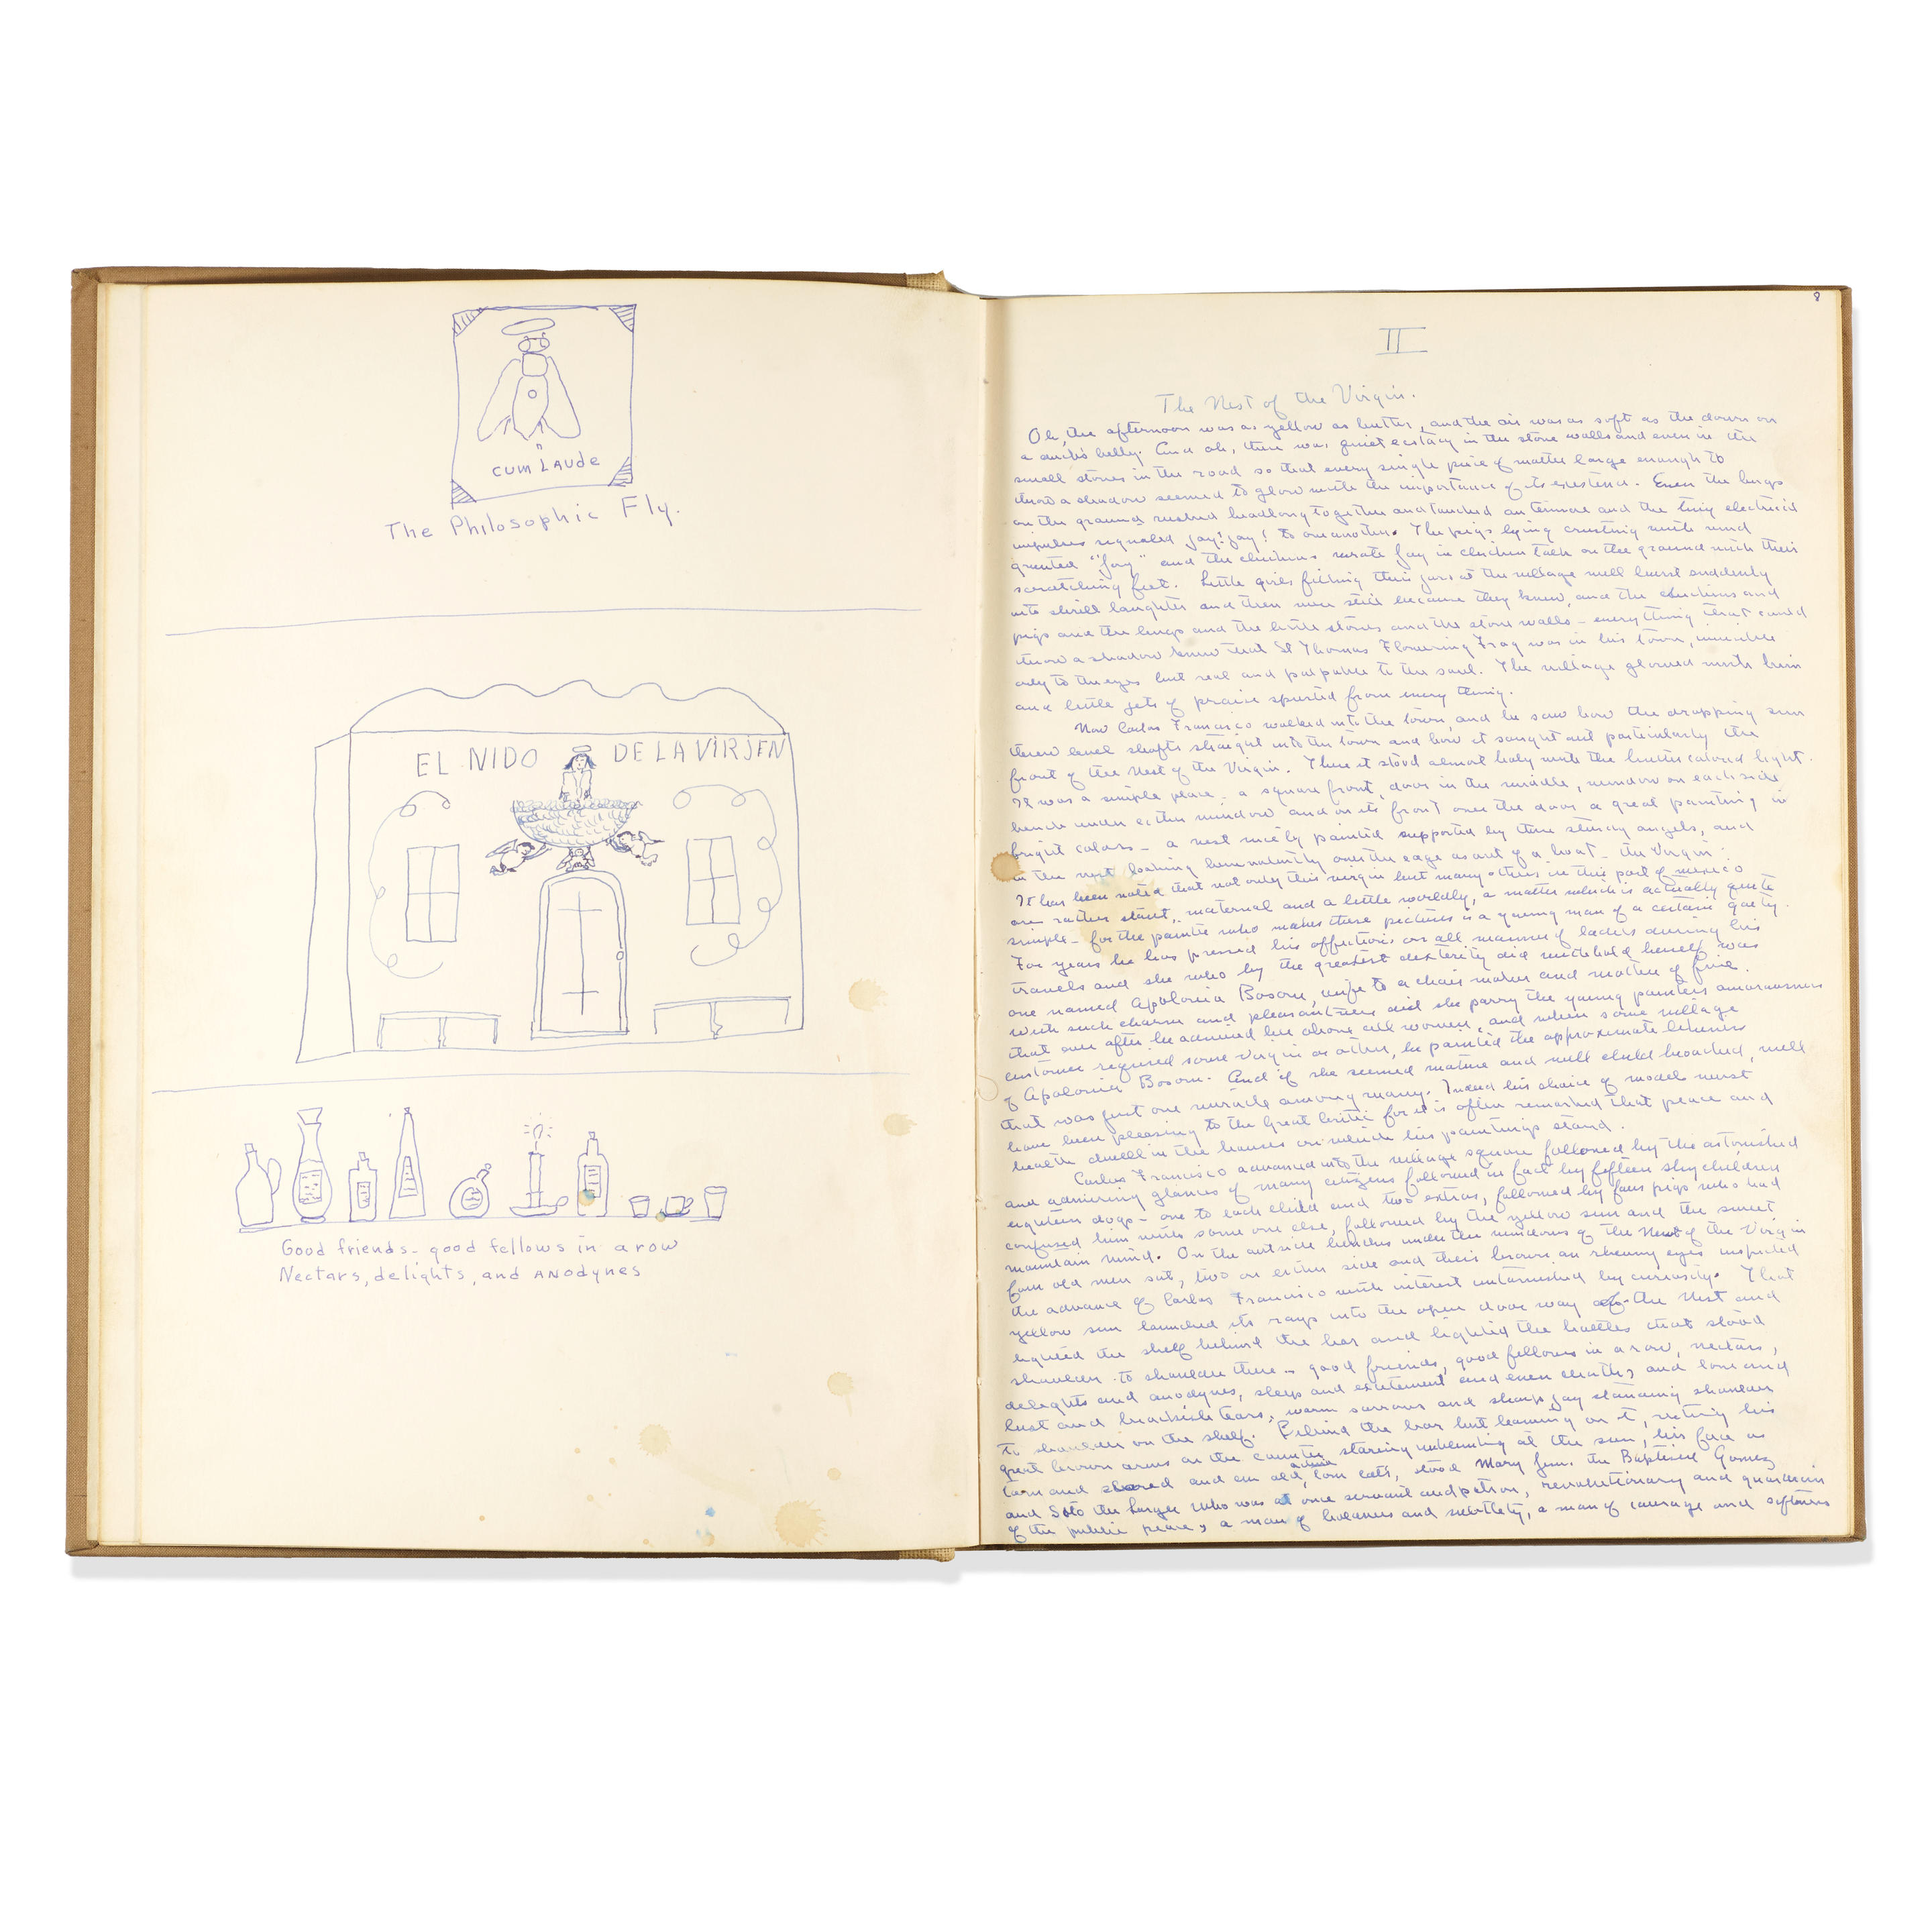 CUM LAUDE
The Philosophic Fly.
EL NIDO DE LA VIRJEN
Good friends - good fellows in a row
Nectars, delights, and ANODYNES
8
II
The Nest of the Virgin.
Oh, the afternoon was as yellow as butter, and the air was as soft as the down on
a duck's belly. And oh, there was quiet ecstacy in the stone walls and even in the
small stones in the road so that every single piece of matter large enough to
throw a shadow seemed to glow with the importance of its existence. Even the bugs
on the ground rushed headlong together and touched antennae and the tiny electricid
impulses signaled joy! joy! to one another. The pigs lying crusting with mud
grunted "joy" and the chickens wrote joy in chicken talk on the ground with their
scratching feet. Little girls filling their jars at the village well burst suddenly
into shrill laughter and then were still because they knew, and the chickens and
pigs and the bugs and the little stones and the stone walls - everything that could
throw a shadow knew that St Thomas Flowering Frag was in his town, invisible
only to the eyes but real and palpable to the soul. The village glowed with him
and little jets of praise spurted from every thing.
Now Carlos Francisco walked into the town, and he saw how the dropping sun
threw level shafts straight into the town and how it sought out particularly the
front of the Nest of the Virgin. There it stood almost holy with the butter colored light.
It was a simple place - a square front, door in the middle, window on each side
bench under either window and on its front over the door a great painting in
bright colors - a nest nicely painted supported by three sturdy angels, and
in the nest looking benevolently over the edge as out of a boat - the Virgin.
It has been noted that not only this virgin but many others in this part of mexico
are rather stout, maternal and a little worldly, a matter which is actually quite
simple - for the painter who makes these pictures is a young man of a certain gaity.
For years he has pressed his affections on all manner of ladies during his
travels and she who by the greatest dexterity did withhold herself was
one named Apolonia Bosom, wife to a chair maker and mother of five.
With such charm and pleasantness did she parry the young painters amorousness
that ever after he admired her above all women, and when some village
customer required some virgin or other, he painted the approximate likeness
of Apolonia Bosom. And if she seemed mature and well child broached, well
that was just one miracle among many. Indeed his choice of model must
have been pleasing to the Great Critic for it is often remarked that peace and
health dwell in the houses on which his paintings stand.
Carlos Francisco advanced into the village square followed by the astonished
and admiring glances of many citizens followed in fact by fifteen shy children
eighteen dogs - one to each child and two extras, followed by four pigs who had
confused him with some one else, followed by the yellow sun and the sweet
mountain wind. On the outside benches under the windows of the Nest of the Virgin
four old men sat, two on either side and their brown an rheumy eyes inspected
the advance of Carlos Francisco with interest untarnished by curiosity. That
yellow sun launched its rays into the open door way of the Nest and
lighted the shelf behind the bar and lighted the bottles that stood
shoulder to shoulder there - good friends, good fellows in a row, nectars,
delights and anodynes, sleep and excitement and even death, and love and
lust and brackish tears, warm sorrow and sharp joy standing shoulder
to shoulder on the shelf. Behind the bar but leaning on it, resting his
great brown arms on the counter staring unblinking at the sun, his face as
torn and scarred and an old tom cat's, stood Mary Jim the Baptised Gomez
and Soto the burger who was at once servant and patron, revolutionary and guardian
of the public peace, a man of and subtlety, a man of courage and softness